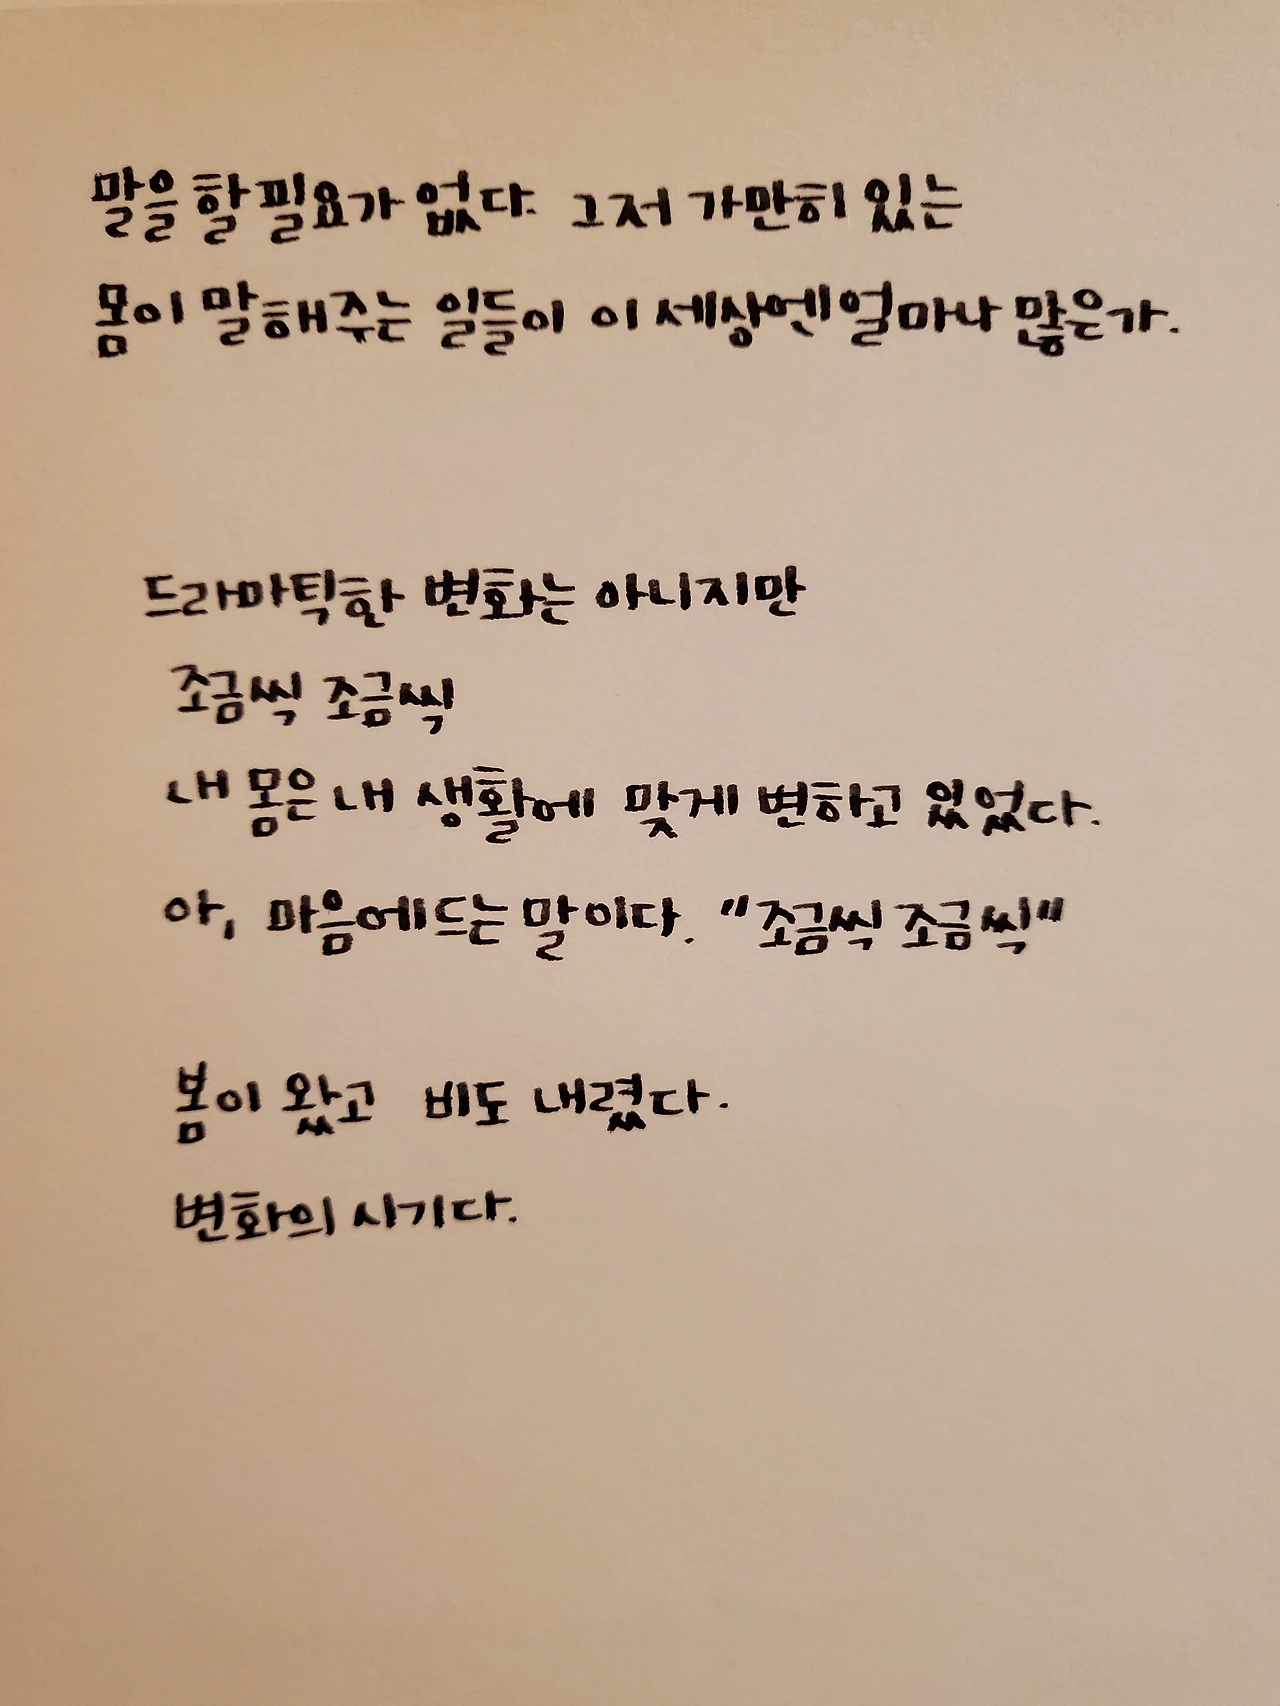 말을 할 필요가 없다. 그저 가만히 있는
몸이 말해주는 일들이 이 세상엔 얼마나 많은가.
드라마틱한 변화는 아니지만
조금씩 조금씩
내 몸은 내 생활에 맞게 변하고 있었다.
아, 마음에 드는 말이다. "조금씩 조금씩"
봄이 왔고 비도 내렸다.
변화의 시기다.